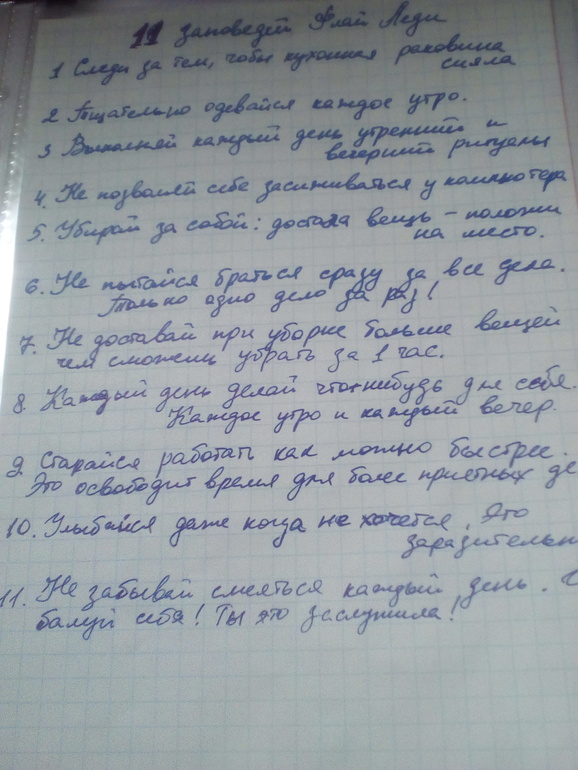 11 заповедей Флай Леди
1 Следи за тем, чтобы кухонная раковина
сияла
2 Тщательно одевайся каждое утро.
3 Выполняй каждый день утренний и
вечерний ритуалы
4. Не позволяй себе засиживаться у компютера
5. Убирай за собой: достала вещь – положи
на место.
6. Не пытайся браться сразу за все дела.
Только одно дело за раз!
7. Не доставай при уборке больше вещей
чем сможешь убрать за 1 час.
8. Каждый день делай что-нибудь для себя.
Каждое утро и каждый вечер.
9. Старайся работать как можно быстрее.
Это освободит время для более приятных де
10. Улыбайся даже когда не хочется. Это
заразительн
11. Не забывай смеяться каждый день.
балуй себя! Ты это заслужила!